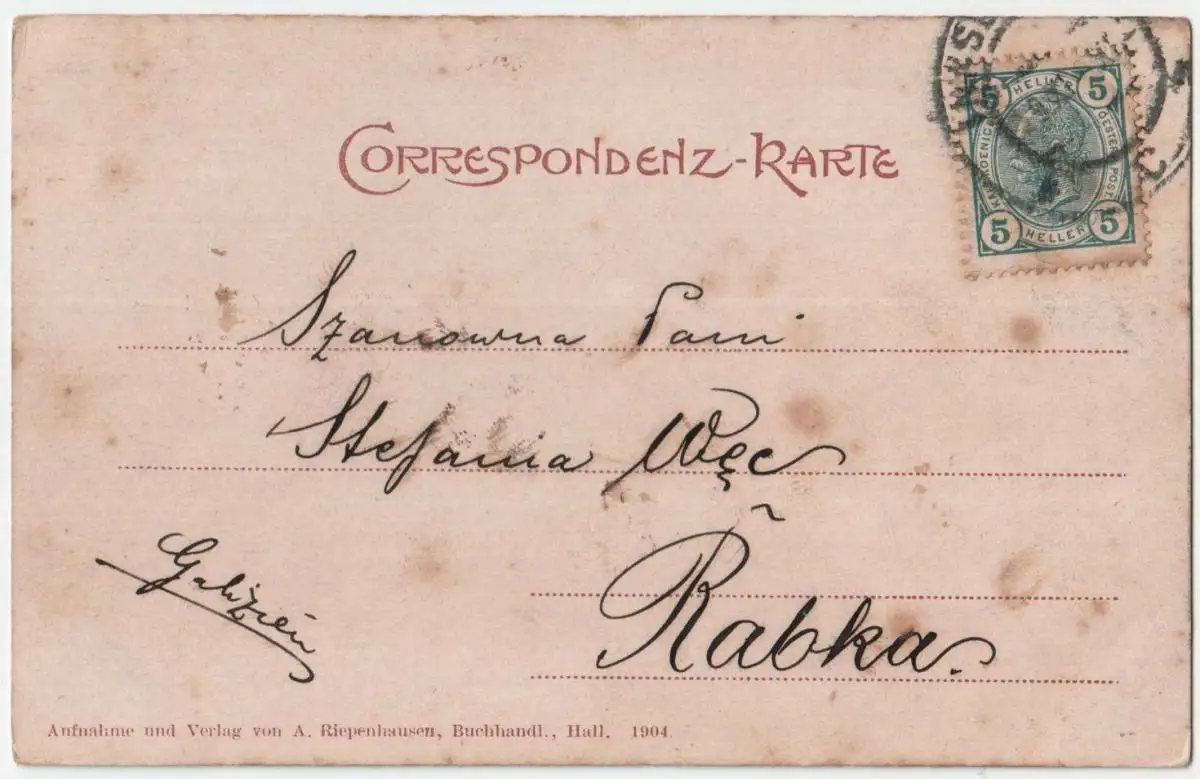 CORRESPONDENZ-KARTE
5 HELLER 5
KAIS. KOENIGL. OESTER. POST
5 HELLER 5
Szanowna Pani
Stefania Węc
Rabka.
Galizien
Aufnahme und Verlag von A. Riepenhausen, Buchhandl., Hall. 1904